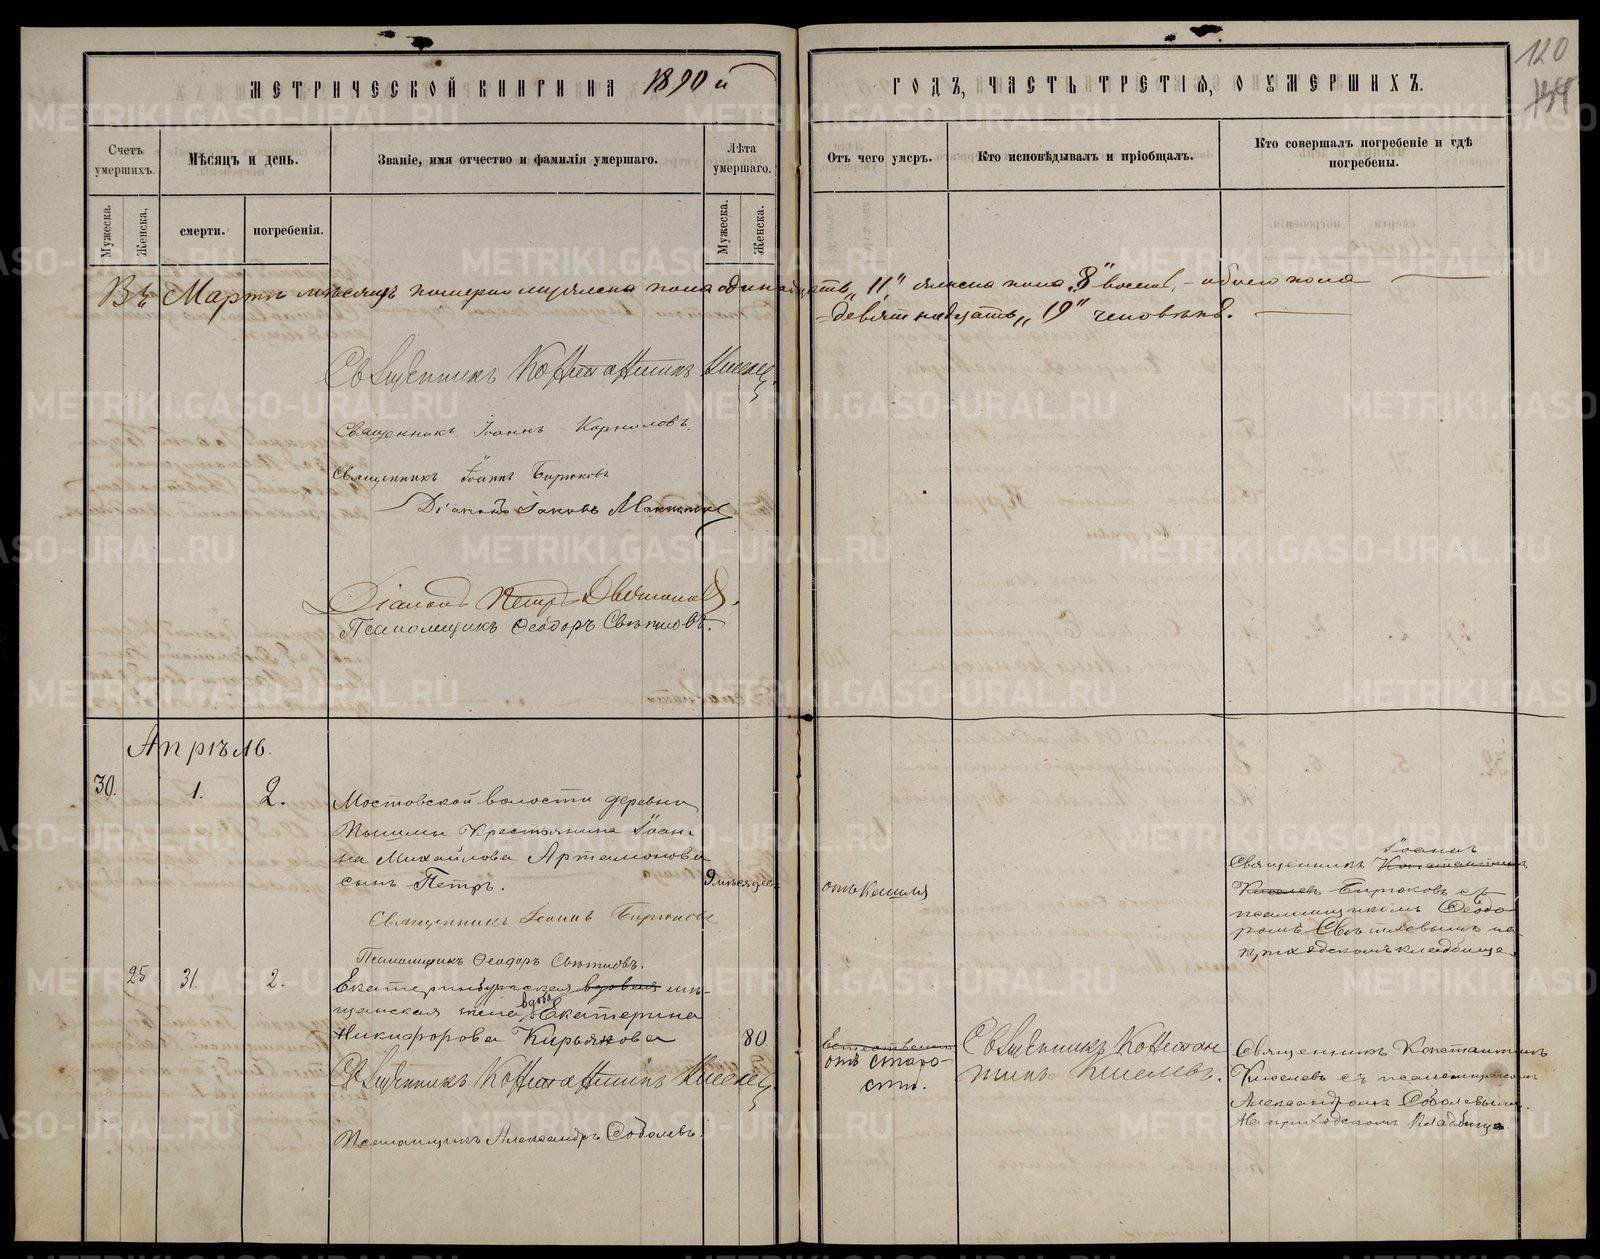 МЕТРИЧЕСКОЙ КНИГИ НА 1890 й
ГОДЪ, ЧАСТЬ ТРЕТІЯ, О УМЕРШИХЪ.
120
Счетъ умершихъ.
Мѣсяцъ и день.
Званіе, имя отчество и фамилія умершаго.
Лѣта умершаго.
Отъ чего умеръ.
Кто исповѣдывалъ и пріобщалъ.
Кто совершалъ погребеніе и гдѣ погребены.
Мужеска.
Женска.
смерти.
погребенія.
Мужеска.
Женска.
Въ Мартѣ мѣсяцѣ померло мужеска пола одинадцать „11" женска пола „8" восемь, – обоего пола
девятнадцать „19" человѣкъ.
Священникъ Константинъ Киселев
Священникъ Іоаннъ Корниловъ.
Священникъ Іоаннъ Бирюковъ
Діаконъ Іаковъ
Діаконъ Петръ
Псаломщикъ Ѳеодоръ Свѣтловъ.
Апрѣль.
30.
1.
2.
Мостовской волости деревни
Пышмы Крестьянина Іоан-
на Михайлова Артамонова
сынъ Петръ.
9 мѣсяцев
отъ кашля
Священникъ Іоаннъ Бирюковъ
Псаломщикъ Ѳеодоръ Свѣтловъ.
Іоаннъ
Священникъ Константинъ
Киселевъ Бирюковъ съ
псаломщикомъ Ѳеодо-
ромъ Свѣтловымъ на
приходскомъ кладбище.
25
31.
2.
Екатеринбургская вдовая мѣ-
щанская жена вдова Екатерина
Никифорова Кирьянова
80
естественно
отъ старо-
сти.
Священникъ Констан
тинъ Киселевъ.
Священникъ Константинъ
Киселевъ съ псаломщикомъ
Александромъ Соболевымъ.
На приходскомъ кладбище
Священникъ Константинъ Киселев
Псаломщикъ Александръ Соболевъ.
METRIKI.GASO-URAL.RU